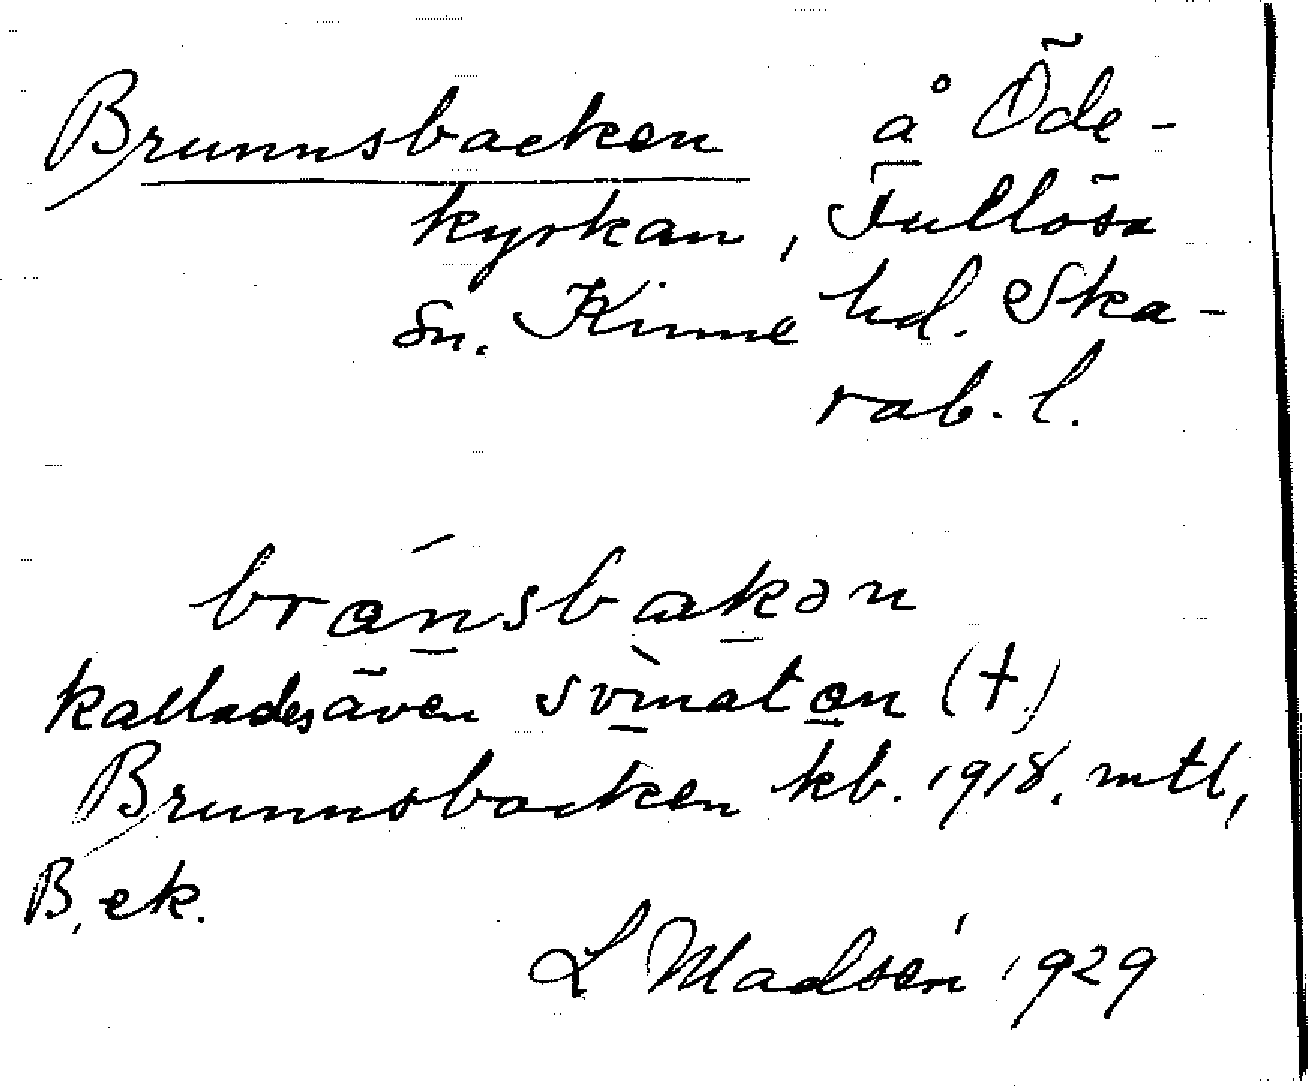 Brunnsbacken å Öde-
kyrkan, Fullösa
sn. Kinne hd. Ska-
rab. l.
bránsbakən
kallades även svìnatən (†)
Brunnsbacken kb. 1918. mtl,
B, ek.
L Madsén 1929